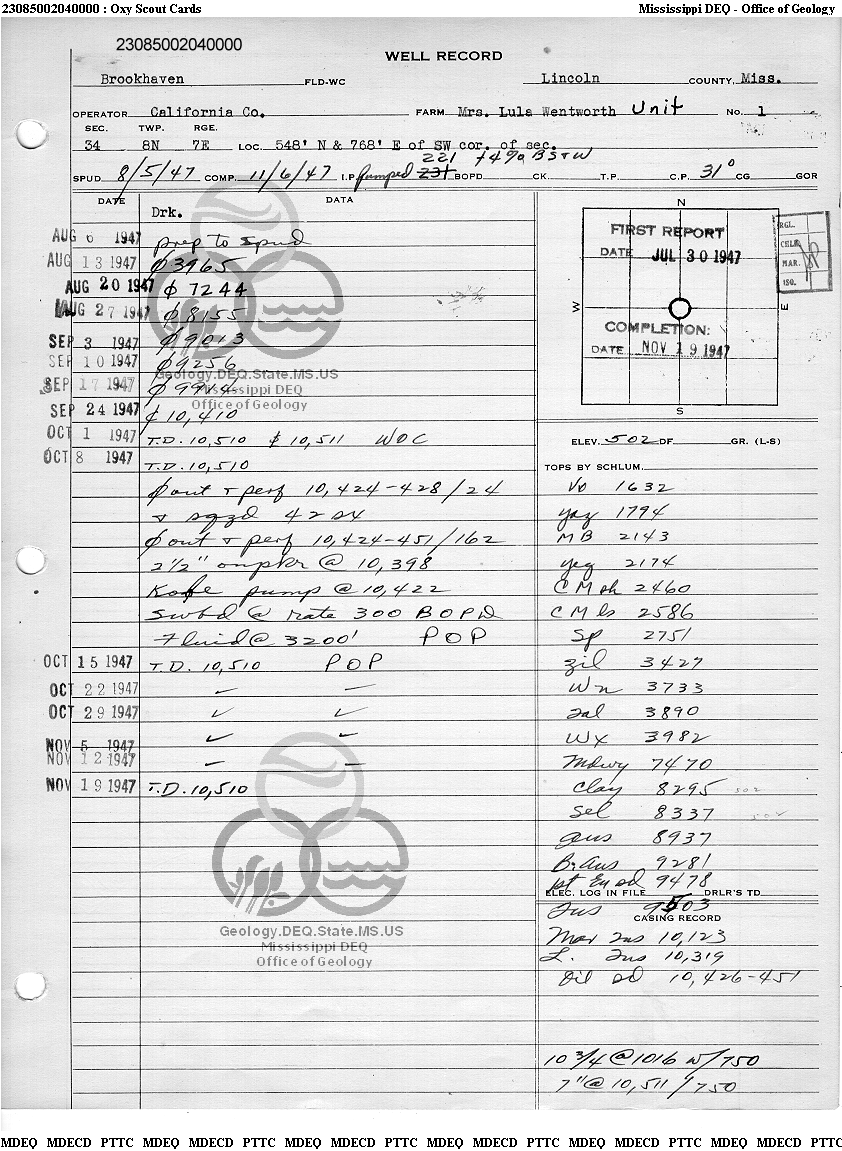 23085002040000 : Oxy Scout Cards Mississippi DEQ - Office of Geology
23085002040000
WELL RECORD
Brookhaven FLD-WC Lincoln COUNTY, Miss.
OPERATOR California Co. FARM Mrs. Lula Wentworth Unit No. 1
SEC. TWP. RGE.
34 8N 7E LOC. 548' N & 768' E of SW cor. of sec.
221 + 4% BS+W
SPUD 8/5/47 COMP. 11/6/47 I.P. Pumped 231 BOPD CK. T.P. C.P. 31° CG GOR
DATE DATA
Drk.
AUG 6 1947 prep to spud
AUG 13 1947 ϕ 3965
AUG 20 1947 ϕ 7244
AUG 27 1947 ϕ 8155
SEP 3 1947 ϕ 9013
SEP 10 1947 ϕ 9256
SEP 17 1947 ϕ 9914
SEP 24 1947 ¢ 10,410
OCT 1 1947 T.D. 10,510 $ 10,511 WOC
OCT 8 1947 T.D. 10,510
ϕ out + perf 10,424-428/24
+ sqzd 42 sx
ϕ out + perf 10,424-451/162
2½" on pkr @ 10,398
Kobe pump @ 10,422
Swbd @ rate 300 BOPD
Fluid @ 3200' POP
OCT 15 1947 T.D. 10,510 POP
OCT 22 1947 – –
OCT 29 1947 ✓ ✓
NOV 5 1947 ✓ –
NOV 12 1947 – –
NOV 19 1947 T.D. 10,510
Geology.DEQ.State.MS.US
Mississippi DEQ
Office of Geology
Geology.DEQ.State.MS.US
Mississippi DEQ
Office of Geology
N
W E
S
FIRST REPORT
DATE JUL 30 1947
COMPLETION:
DATE NOV 19 1947
RGL.
CHLK
MAR.
ISO.
ELEV. 502 DF GR. (L-S)
TOPS BY SCHLUM.
Vo 1632
yaz 1794
MB 2143
yeg 2174
CM sh 2460
CM ls 2586
Sp 2751
Zil 3427
Wn 3733
Sal 3890
WX 3982
Mdwy 7470
Clay 8295 502
Sel 8337 502
aus 8937
B. aus 9281
1st Eu sd 9478
ELEC. LOG IN FILE DRLR'S TD
Tus 9503
CASING RECORD
Mar Tus 10,123
L. Tus 10,319
Oil sd 10,426-451
10 3/4 @ 1016 w/750
7" @ 10,511 /750
MDEQ MDECD PTTC MDEQ MDECD PTTC MDEQ MDECD PTTC MDEQ MDECD PTTC MDEQ MDECD PTTC MDEQ MDECD PTTC